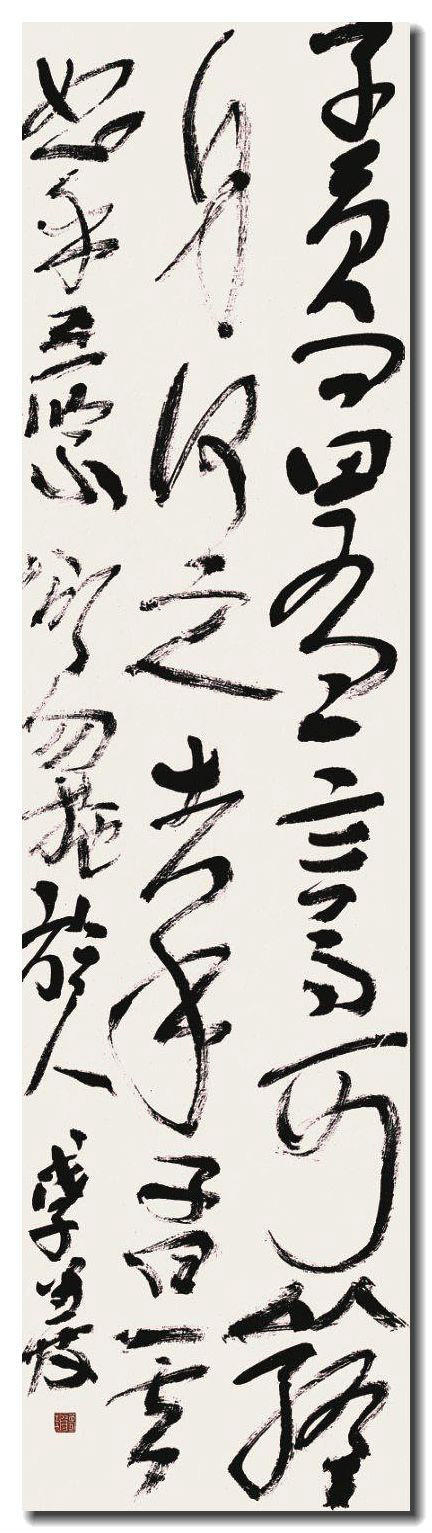 子貢問曰有一言而可以終
身行之者乎子曰其
恕乎己所不欲勿施於人